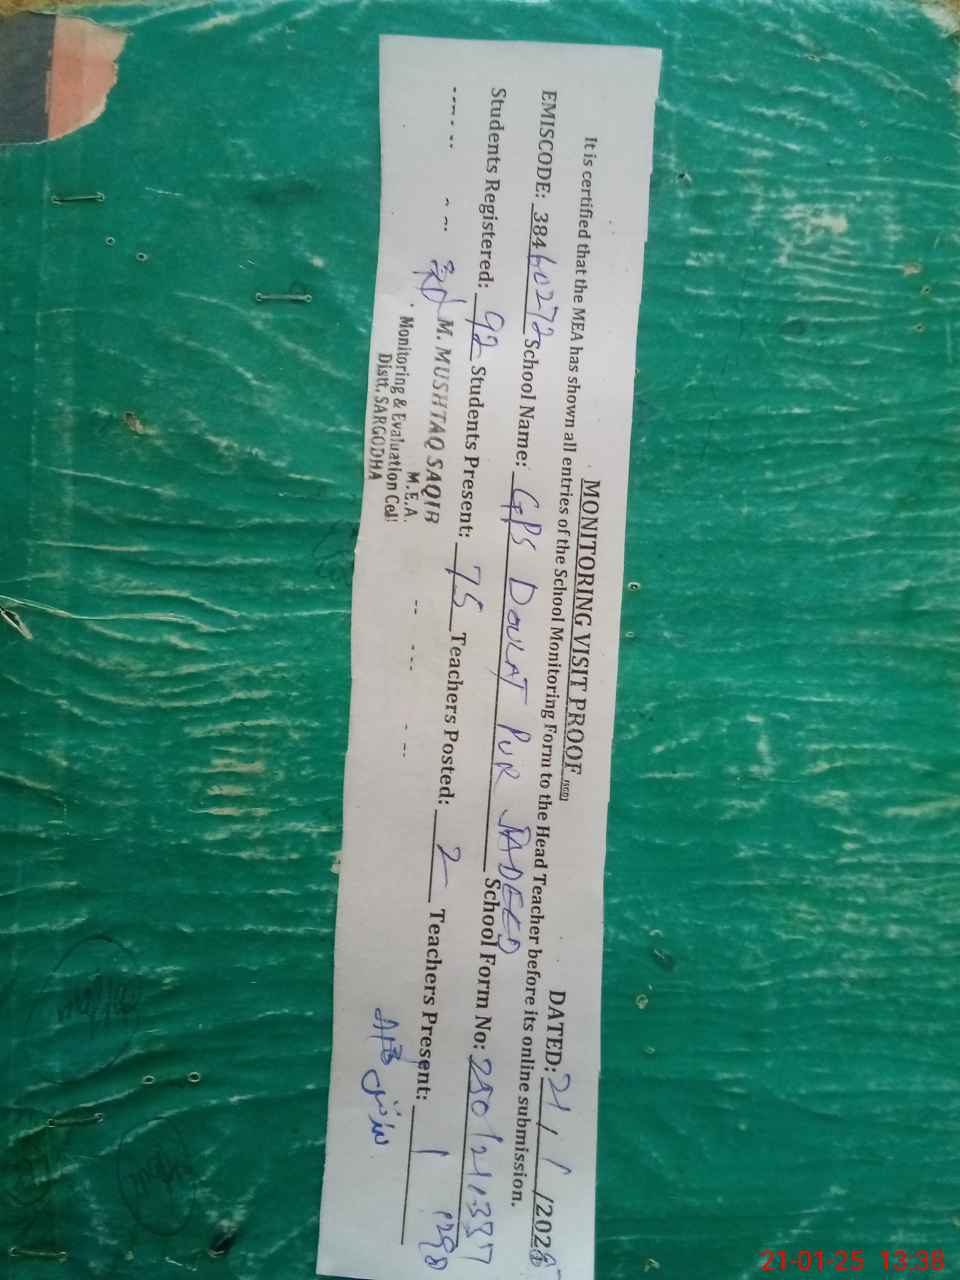 MONITORING VISIT PROOF
DATED: 21/1/2025
It is certified that the MEA has shown all entries of the School Monitoring Form to the Head Teacher before its online submission.
EMISCODE: 38460272 School Name: GPS DOULAT PUR JADEED School Form No:
Students Registered: 92 Students Present: 75 Teachers Posted: 2 Teachers Present: 1
M. MUSHTAQ SAQIB
M.E.A.
Monitoring & Evaluation Cell
Distt. SARGODHA
21-01-25 13:38